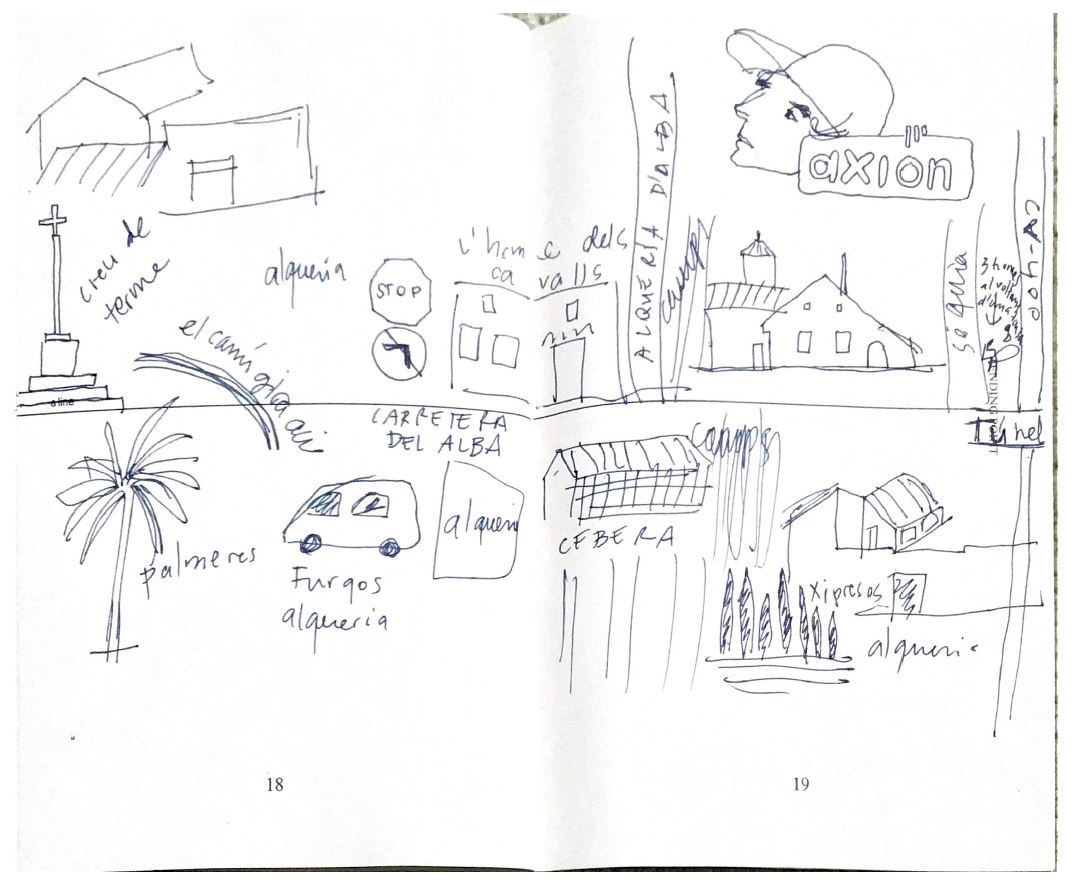 creu de
terme
alqueria
STOP
l'home dels
ca valls
ALQUERÍA D'ALBA
camps
axión
Séquia
3 hom
al volt
d'una
CV-400
a line
el camí gira
CARRETERA
DEL ALBA
Túnel
palmeres
Furgos
alqueria
alqueri
camps
CEBERA
xipresos
alqueria
18
19